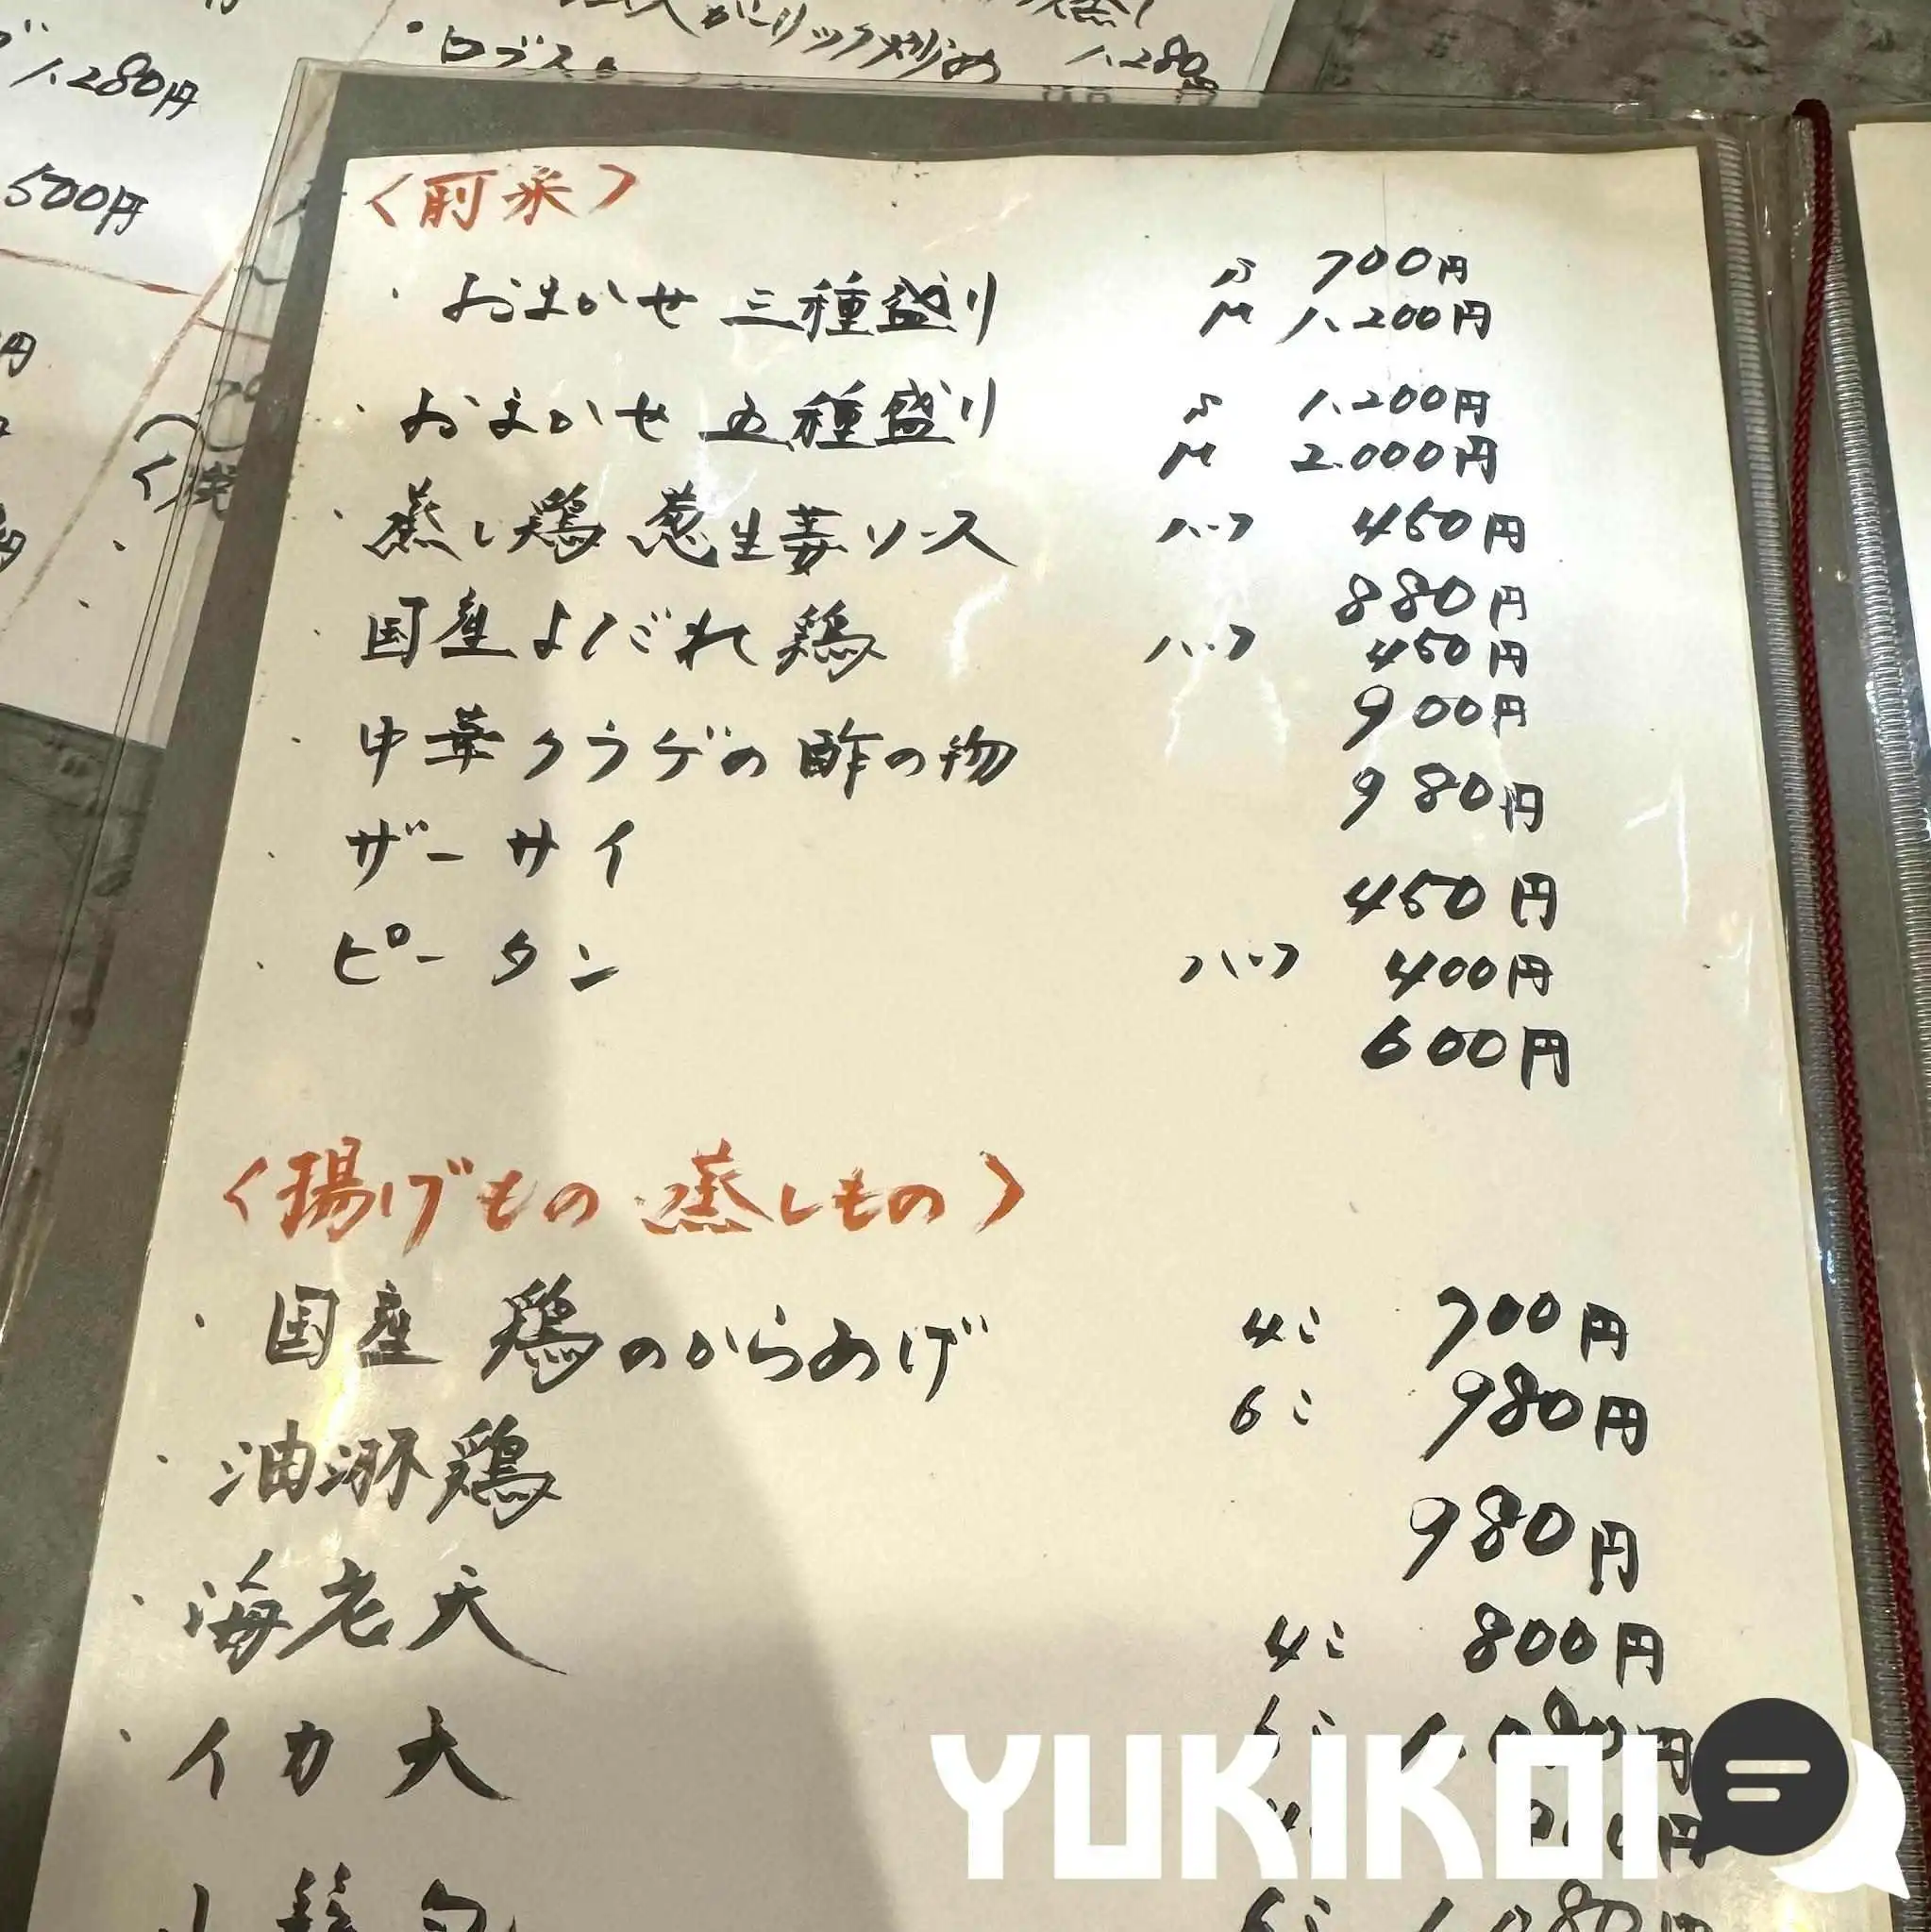 ガーリック炒め 1.280円
1.280円
500円
〈前菜〉
・おまかせ 三種盛り S 700円
M 1.200円
・おまかせ 五種盛り S 1.200円
M 2.000円
・蒸し鶏 葱生姜ソース ハーフ 450円
880円
・国産よだれ鶏 ハーフ 450円
900円
・中華クラゲの酢の物 980円
・ザーサイ 450円
・ピータン ハーフ 400円
600円
〈揚げもの 蒸しもの〉
・国産 鶏のからあげ 4コ 700円
6コ 980円
・油淋鶏 980円
・海老天 4コ 800円
6コ 1.080円
・イカ天
YUKIKOI